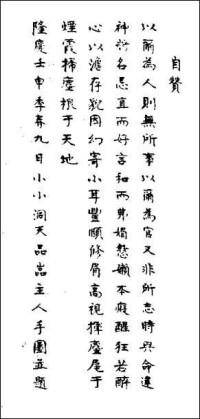 自贊
以爾為人則無所事以爾為官又非所志時與命違
神所名忌直而好言和而弗媚憨嬾本癡醒狂若醉
心以澹存貌因幻寄小耳豐頤修眉高視揮麈尾于
煙霞掃塵根于天地
隆慶壬申季春九日小小洞天品嵓主人手圖並題